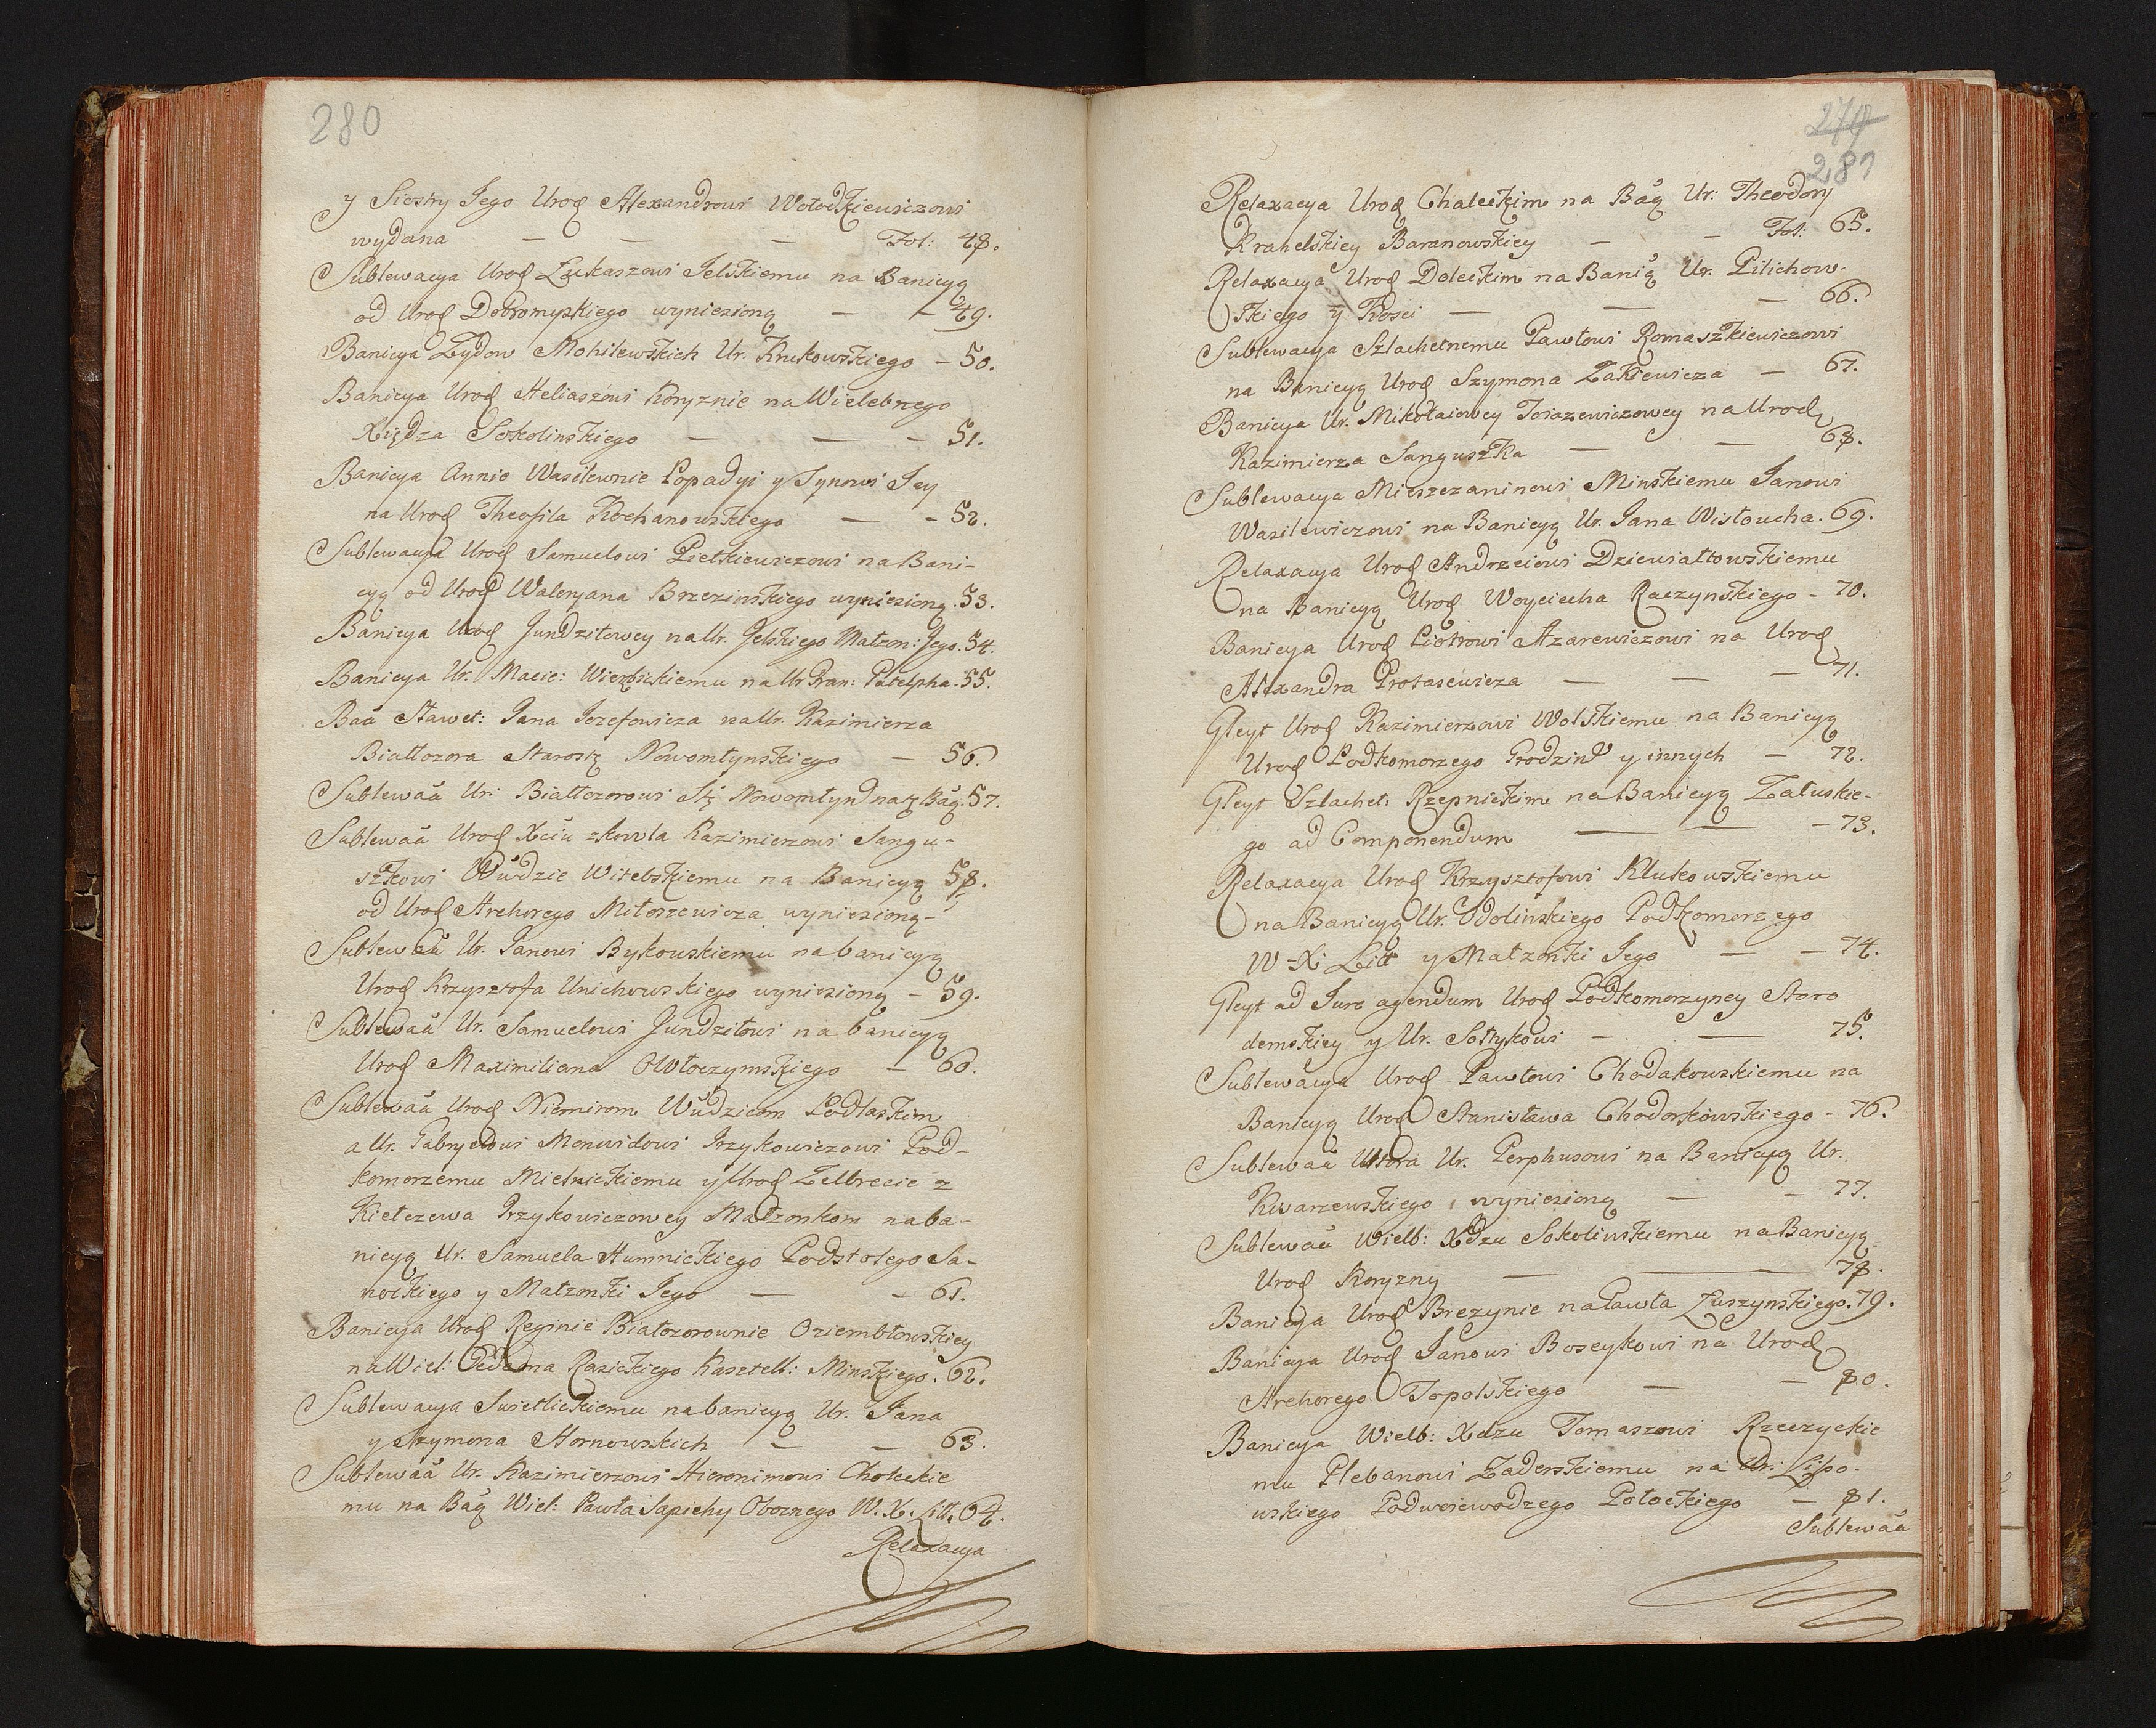 280
y Siostry Jego Urod Alexandrowi Wołodkiewiczowi
wydana — — — Fol: 48.
Sublewacya Urod Łukaszowi Jelskiemu na Banicyą
od Urod Dobromyskiego wyniesioną — — 49.
Banicya Żydow Mohilewskich Ur. Krukowskiego — 50.
Banicya Urod Heliaszowi Koryznie na Wielebnego
Xiędza Sokolinskiego — — — 51.
Banicya Annie Wasilewnie Popadyi y Synowi Jey
na Urod Theofila Kochanowskiego — — 52.
Sublewacya Urod Samuelowi Pietkiewiczowi na Bani-
cyą od Urod Waleryana Brzezinskiego wyniesioną. 53.
Banicya Urod Jundziłowey na Ur. Jelskiego Małzon: Jego. 54.
Banicya Ur. Macie: Wierzbickiemu na Ur Fran: Patelpha. 55.
Baa Sławet: Jana Jozefowicza na Ur. Kazimierza
Białłozora Starostę Nowomłynskiego — 56.
Sublewaa Ur: Białłozorowi Stę Nowomłyn na tę Baą. 57.
Sublewaa Urod Xciu zkowla Kazimierzowi Sangu-
szkowi Wudzie Witebskiemu na Banicyą 58.
od Urod Hrehorego Miłoszewicza wyniesioną —
Sublewaa Ur. Janowi Bykowskiemu na banicyą
Urod Krzysztofa Unichowskiego wyniesioną — 59.
Sublewaa Ur. Samuelowi Jundziłowi na banicyą
Urod Maximiliana Ołłoczymskiego — 60.
Sublewaa Urod Niemirom Wudzicom Podlaskim
a Ur. Gabryelowi Monwidowi Irzykowiczowi Pod-
komorzemu Mielnickiemu y Urod Zelbrecie z
Kiełczewa Irzykowiczowey Małzonkom na ba-
nicyą Ur. Samuela Humnickiego Podstolego Sa-
nockiego y Małzonki Jego — — 61.
Banicya Urod Reginie Białozorownie Oziembłowskiey
na Wiel: Gedeona Razickiego Kasztell: Minskiego. 62.
Sublewacya Swietlickiemu na banicyą Ur. Jana
y Szymona Hornowskich — — 63.
Sublewaa Ur. Kazimierzowi Hieronimowi Choleckie
mu na Baą Wiel: Pawła Sapiehy Oboznego W. X. Litt. 64.
Relaxacya
279
281
Relaxacya Urod Chaleckim na Baą Ur: Theodory
Kranelskiey Baranowskiey — — Fol: 65.
Relaxacya Urod Doleckim na Banią Ur. Pilichow-
skiego y Kosci — — — 66.
Sublewacya Szlachetnemu Pawłowi Romaszkiewiczowi
na Banicyą Urod Szymona Zakrewicza — 67.
Banicya Ur. Mikołaiowey Toiazewiczowey na Urod
Kazimierza Sanguszka — — 68.
Sublewacya Mieszczaninowi Minskiemu Janowi
Wasilewiczowi na Banicyą Ur. Jana Wisłoucha. 69.
Relaxacya Urod Andrzeiowi Dziewiałtowskiemu
na Banicyą Urod Woyciecha Raczynskiego — 70.
Banicya Urod Piotrowi Azarewiczowi na Urod
Alexandra Protasewicza — — — 71.
Gleyt Urod Kazimierzowi Wolskiemu na Banicyą
Urod Podkomorzego Grodzin y innych — 72.
Gleyt Szlachet: Rzepnickim na Banicyą Załuskie-
go ad Componendum — — — 73.
Relaxacya Urod Krzysztofowi Klukowskiemu
na Banicyą Ur. Odolinskiego Podkomorzego
W-X: Litt y Małzonki Jego — — 74.
Gleyt ad Jure agendum Urod Podkomorzyney Staro
demskiey y Ur. Sołtykowi — — 75.
Sublewacya Urod Pawłowi Chodakowskiemu na
Banicyą Urod Stanisława Chodorkowskiego — 76.
Sublewaa Ur. Perphusowi na Banicyą Ur.
Kwarzewskiego wyniesioną — — 77.
Sublewaa Wielb: Xdzu Sokolinskiemu na Banicyą
Urod Koryzny — — 78.
Banicya Urod Brezynie na Pawła Łuszynskiego. 79.
Banicya Urod Janowi Boseykowi na Urod
Hrehorego Topolskiego — — 80.
Banicya Wielb: Xdzu Tomaszowi Rzeczyckie
mu Plebanowi Zaderskiemu na Ur: Lipo-
wskiego Podwoiewodzego Połockiego — 81.
Sublewaa